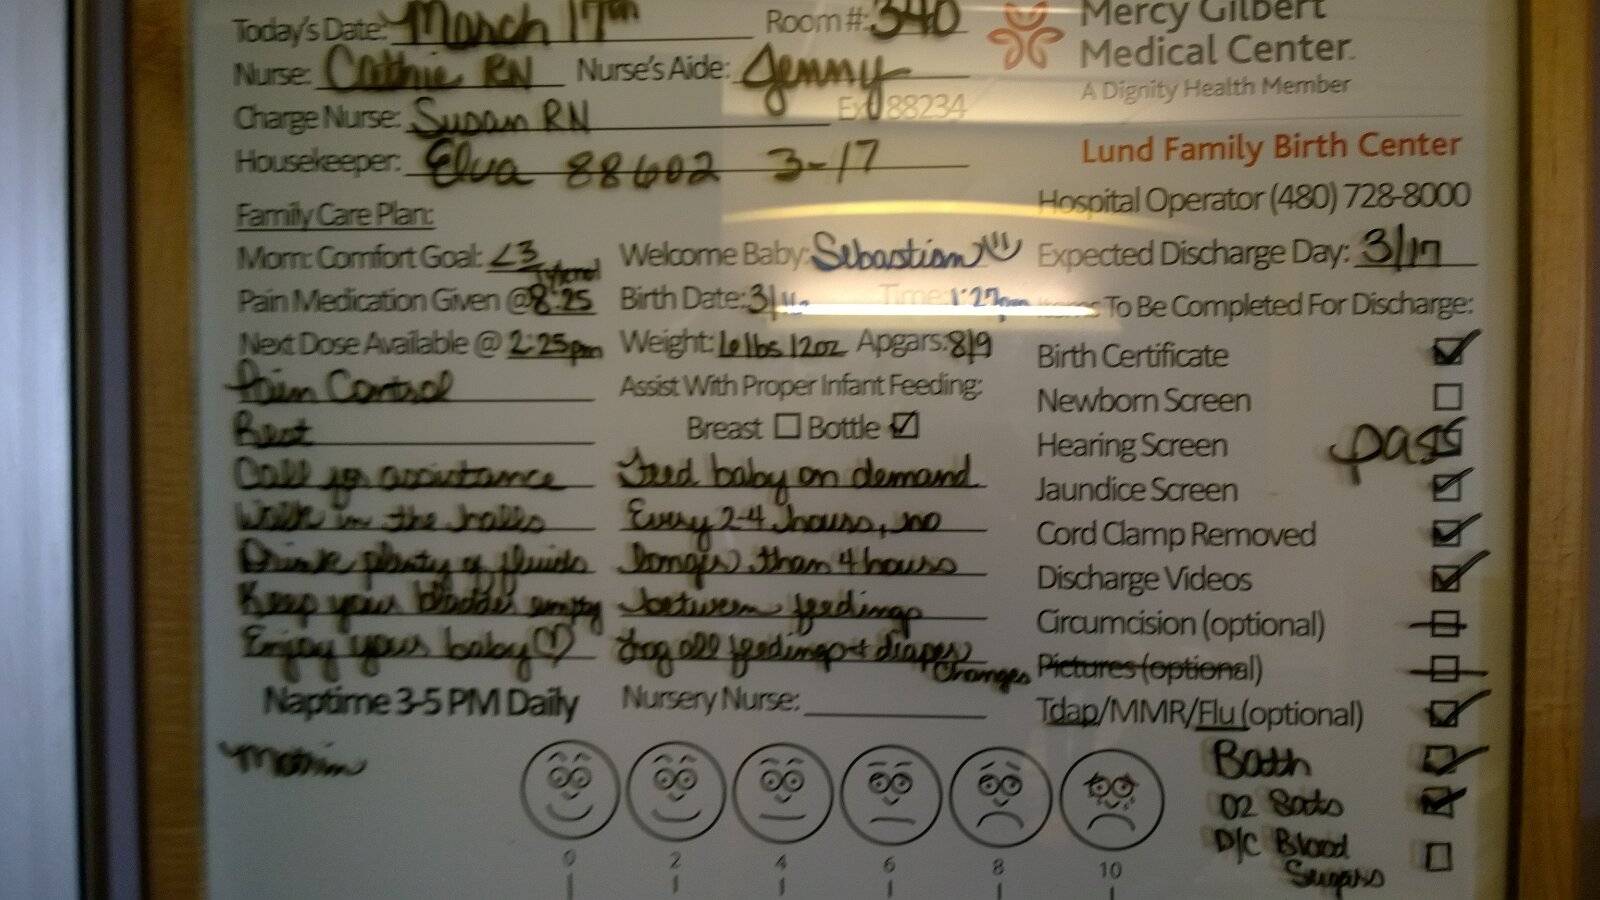 Today's Date: March 17th Room #: 340
Nurse: Cathie RN Nurse's Aide: Jenny
Charge Nurse: Susan RN Ext 88234
Housekeeper: Elva 88602 3-17
Mercy Gilbert
Medical Center.
A Dignity Health Member
Lund Family Birth Center
Hospital Operator (480) 728-8000
Expected Discharge Day: 3/17
Family Care Plan:
Mom: Comfort Goal: <3
Tylenol
Pain Medication Given @ 8:25
Next Dose Available @ 2:25pm
Pain Control
Rest
Call for assistance
Walk in the halls
Drink plenty of fluids
Keep your bladder empty
Enjoy your baby ♡
Naptime 3-5 PM Daily
Motrin
Welcome Baby: Sebastian
Birth Date: 3/16 Time: 1:27pm
Weight: 6lbs 12oz Apgars: 8/9
Assist With Proper Infant Feeding:
Breast ☐ Bottle ☑
Feed baby on demand
Every 2-4 hours, no
longer than 4 hours
between feedings
Log all feedings + diaper
changes
Nursery Nurse:
Items To Be Completed For Discharge:
Birth Certificate ☑
Newborn Screen ☐
Hearing Screen pass ☑
Jaundice Screen ☑
Cord Clamp Removed ☑
Discharge Videos ☑
Circumcision (optional)
Pictures (optional)
Tdap/MMR/Flu (optional) ☑
Bath ☑
O2 Sats ☑
D/C Blood ☐
Sugars
0 2 4 6 8 10